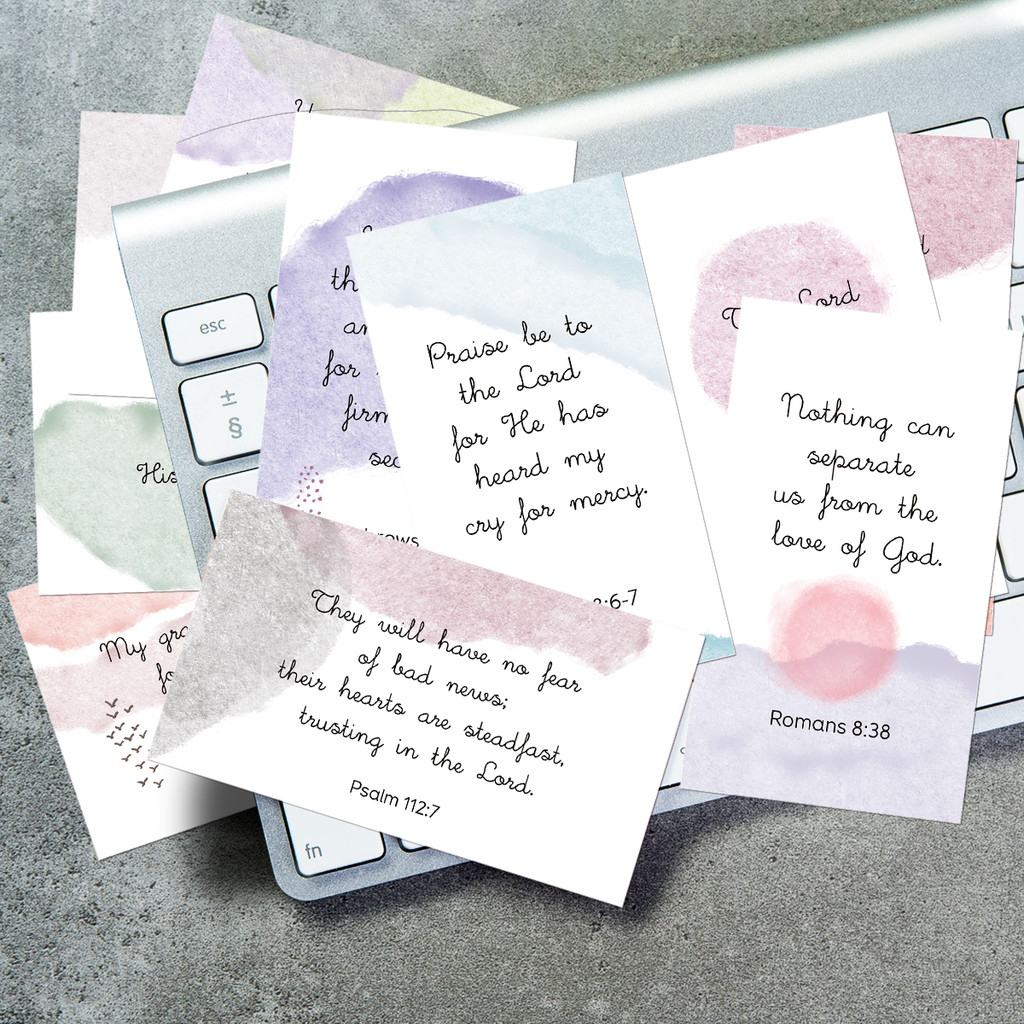 Praise be to
the Lord
for He has
heard my
cry for mercy.
:6-7
Nothing can
separate
us from the
love of God.
Romans 8:38
They will have no fear
of bad news;
their hearts are steadfast,
trusting in the Lord.
Psalm 112:7
Lord
th
for
firm
His
My
esc
±
§
fn